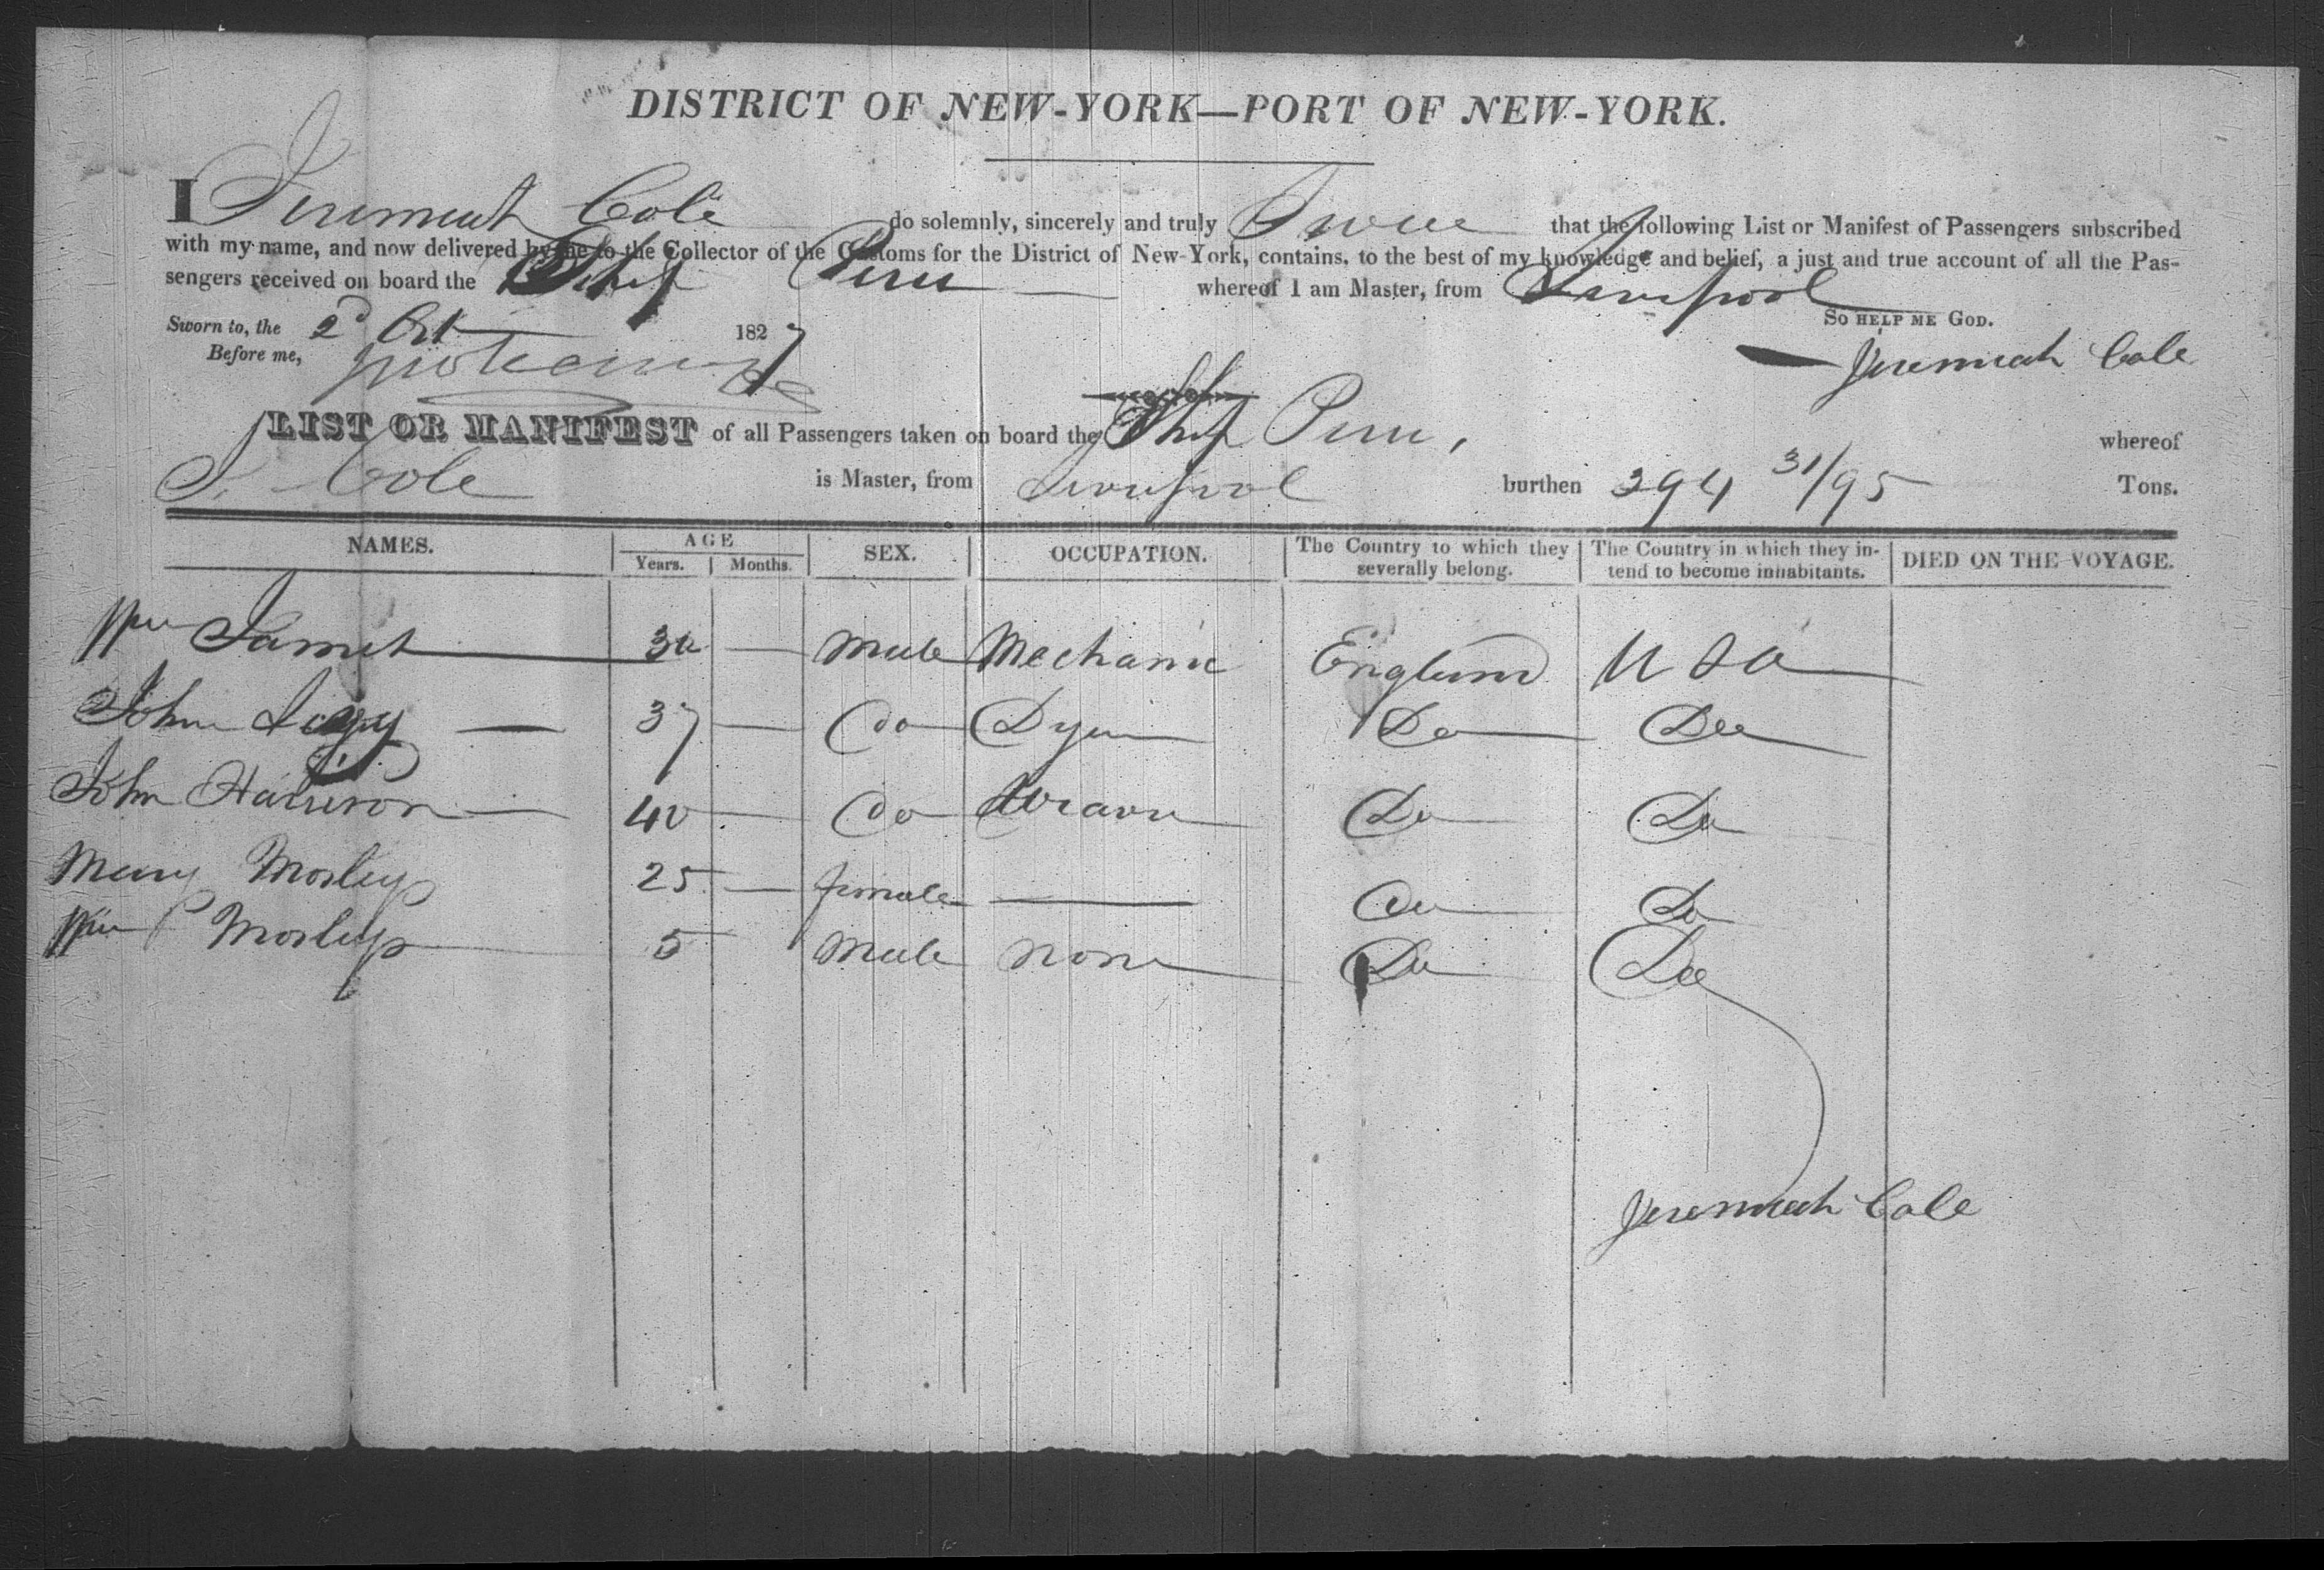 DISTRICT OF NEW-YORK—PORT OF NEW-YORK.
I Jeremiah Cole do solemnly, sincerely and truly Swear that the following List or Manifest of Passengers subscribed
with my name, and now delivered by me to the Collector of the Customs for the District of New-York, contains, to the best of my knowledge and belief, a just and true account of all the Pas-
sengers received on board the Ship Peru whereof I am Master, from Liverpool
Sworn to, the 2d Oct 1827 SO HELP ME GOD.
Before me, Jeremiah Cole
LIST OR MANIFEST of all Passengers taken on board the Ship Peru, whereof
J. Cole is Master, from Liverpool burthen 394 31/95 Tons.
NAMES. AGE Years. Months. SEX. OCCUPATION. The Country to which they severally belong. The Country in which they in-tend to become inhabitants. DIED ON THE VOYAGE.
Wm 30 — Male Mechanic England U S A
John 37 — Do Dyer Do Do
John Harrison 40 — Do Weaver Do Do
Mary Morley 25 — female — Do Do
Wm Morley 5 Male none Do Do
Jeremiah Cole